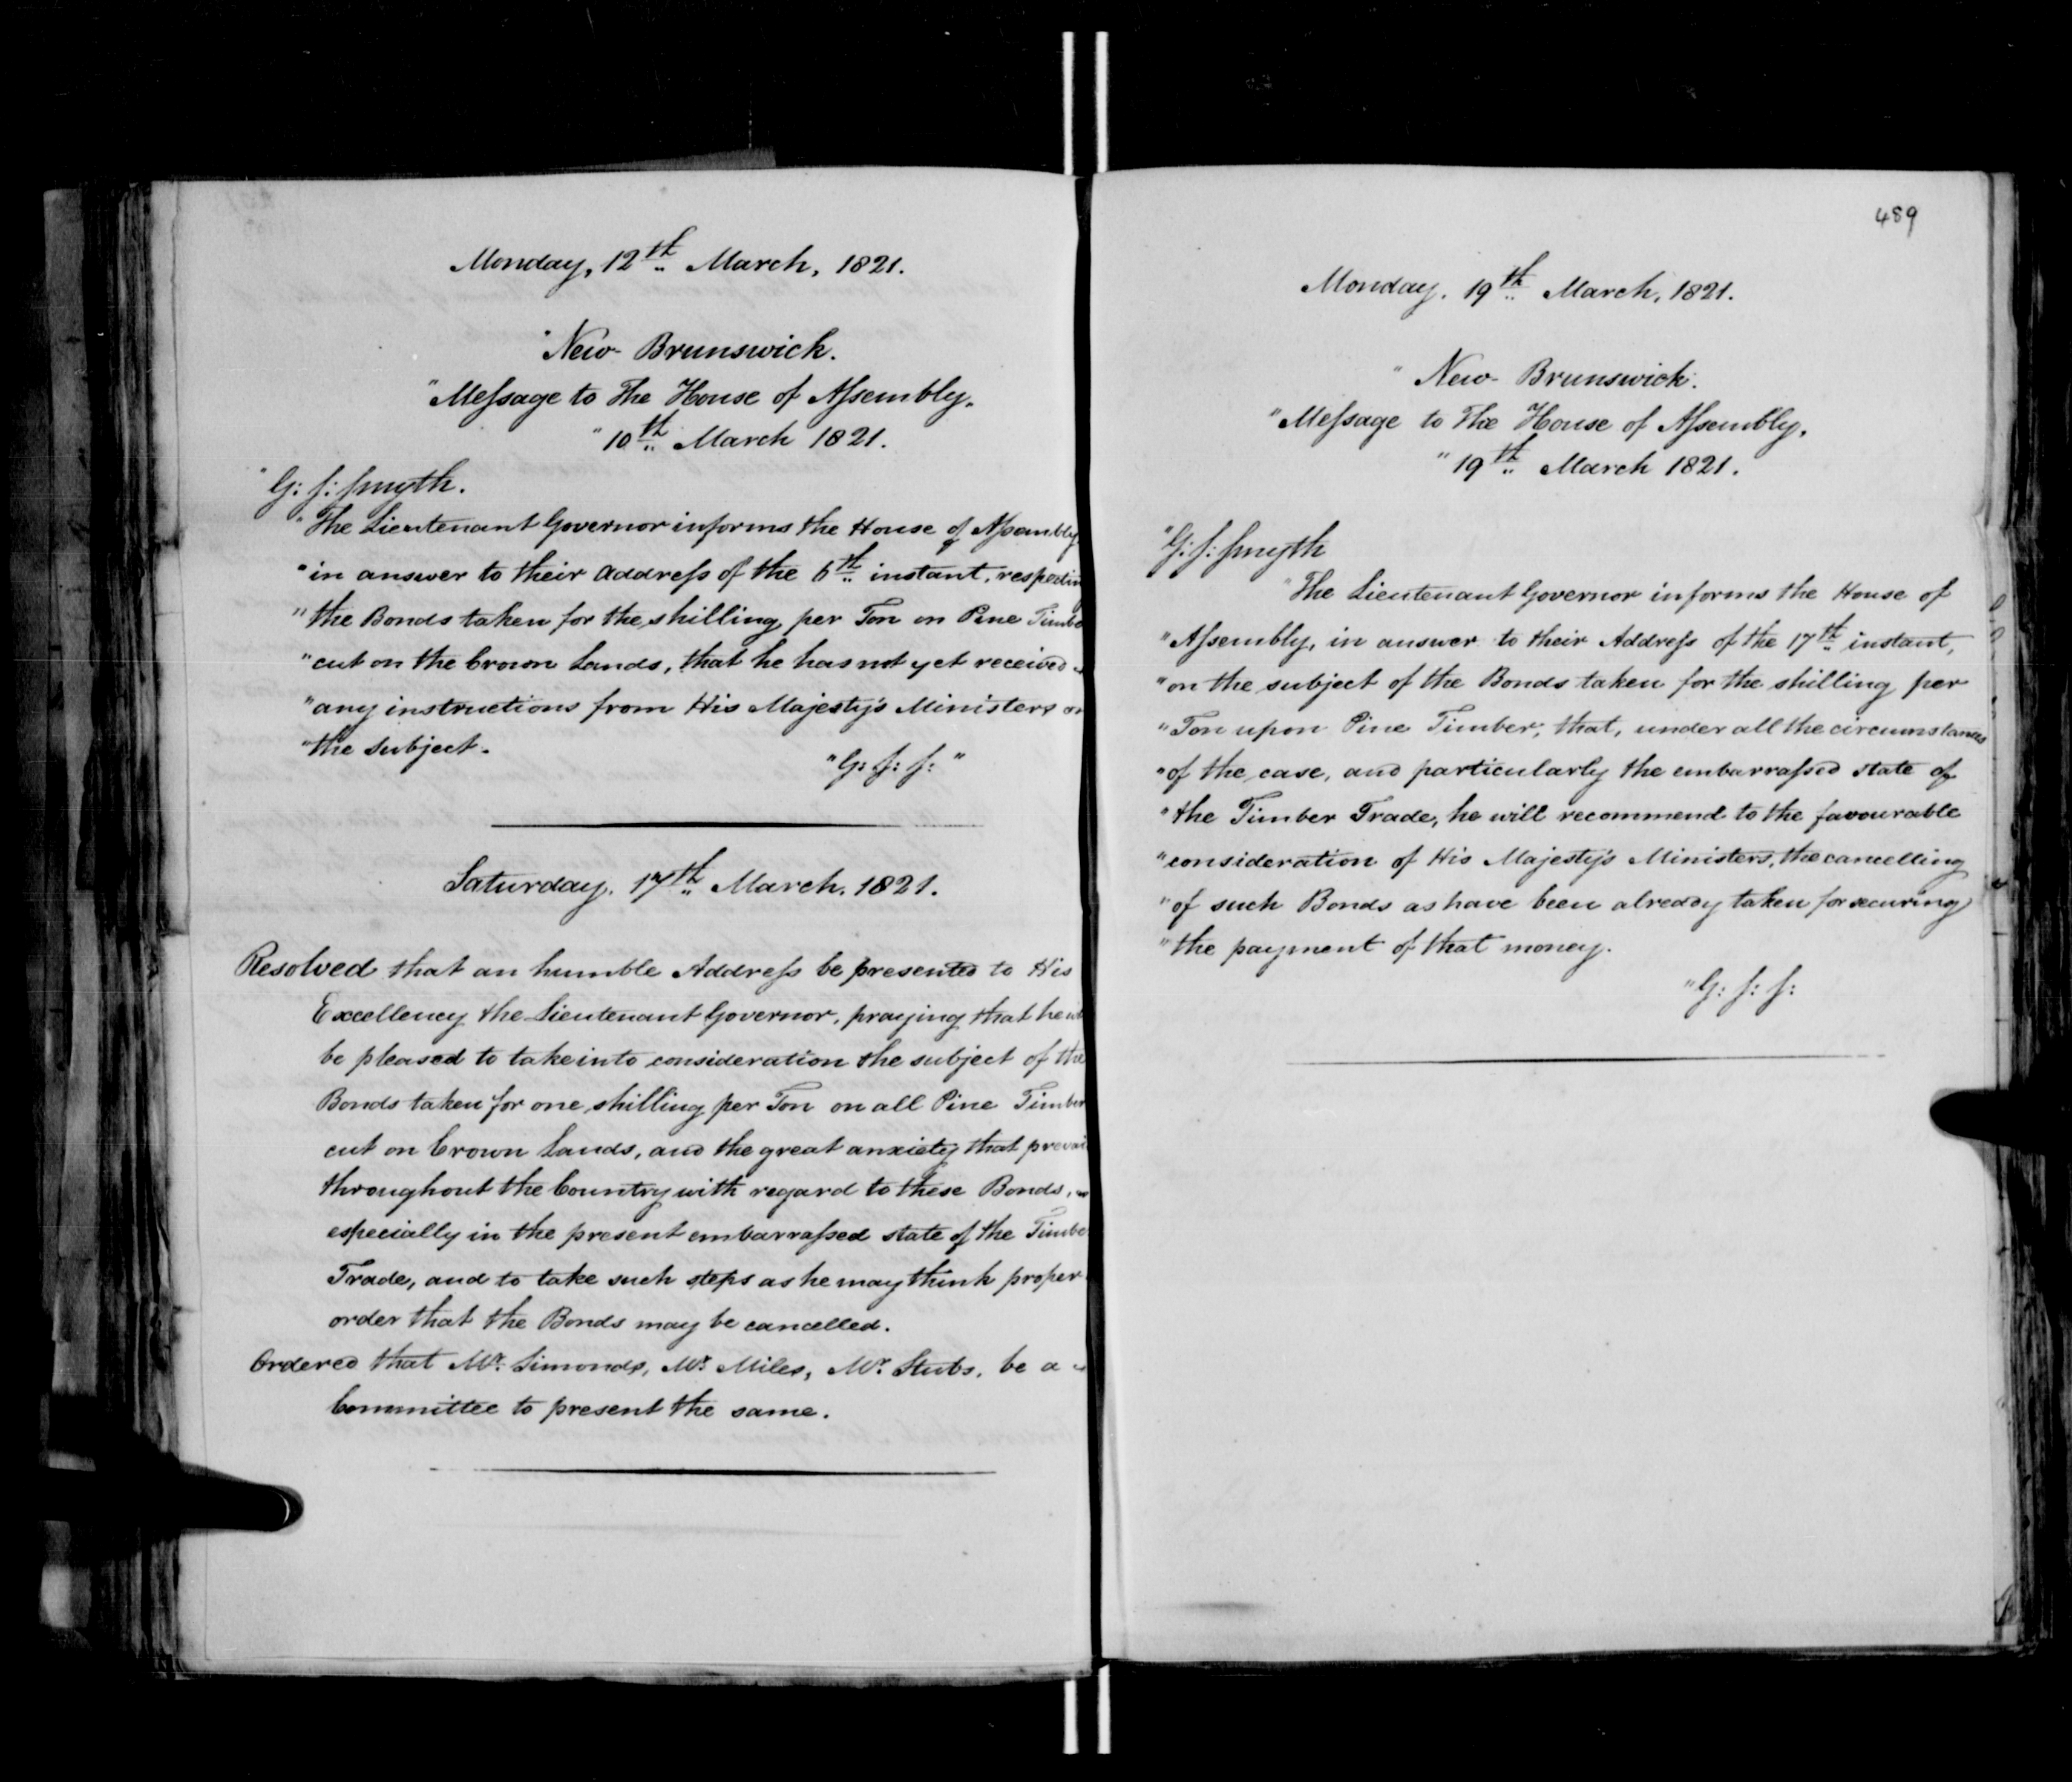 Monday, 12th March, 1821.
"New-Brunswick.
"Message to The House of Assembly.
"10th March 1821.
"G: S: Smyth.
"The Lieutenant Governor informs the House of Assembly
"in answer to their Address of the 6th instant, respectin
"the Bonds taken for the shilling per Ton on Pine Timbe
"cut on the Crown Lands, that he has not yet received
"any instructions from His Majesty's Ministers on
"the subject.
"G: S: S: "
Saturday, 17th March, 1821.
Resolved that an humble Address be presented to His
Excellency the Lieutenant Governor, praying that he
be pleased to take into consideration the subject of the
Bonds taken for one shilling per Ton on all Pine Timber
cut on Crown Lands, and the great anxiety that prevai
throughout the Country with regard to these Bonds,
especially in the present embarrassed state of the Timbe
Trade, and to take such steps as he may think proper
order that the Bonds may be cancelled.
Ordered that Mr. Simonds, Mr. Miles, Mr. Stubs, be a
Committee to present the same.
489
Monday, 19th March, 1821.
"New-Brunswick.
"Message to The House of Assembly,
"19th March 1821.
"G: S: Smyth
"The Lieutenant Governor informs the House of
"Assembly, in answer to their Address of the 17th instant,
"on the subject of the Bonds taken for the shilling per
"Ton upon Pine Timber, that, under all the circumstances
"of the case, and particularly the embarrassed state of
"the Timber Trade, he will recommend to the favourable
"consideration of His Majesty's Ministers, the cancelling
"of such Bonds as have been already taken for securing
"the payment of that money.
"G: S: S: